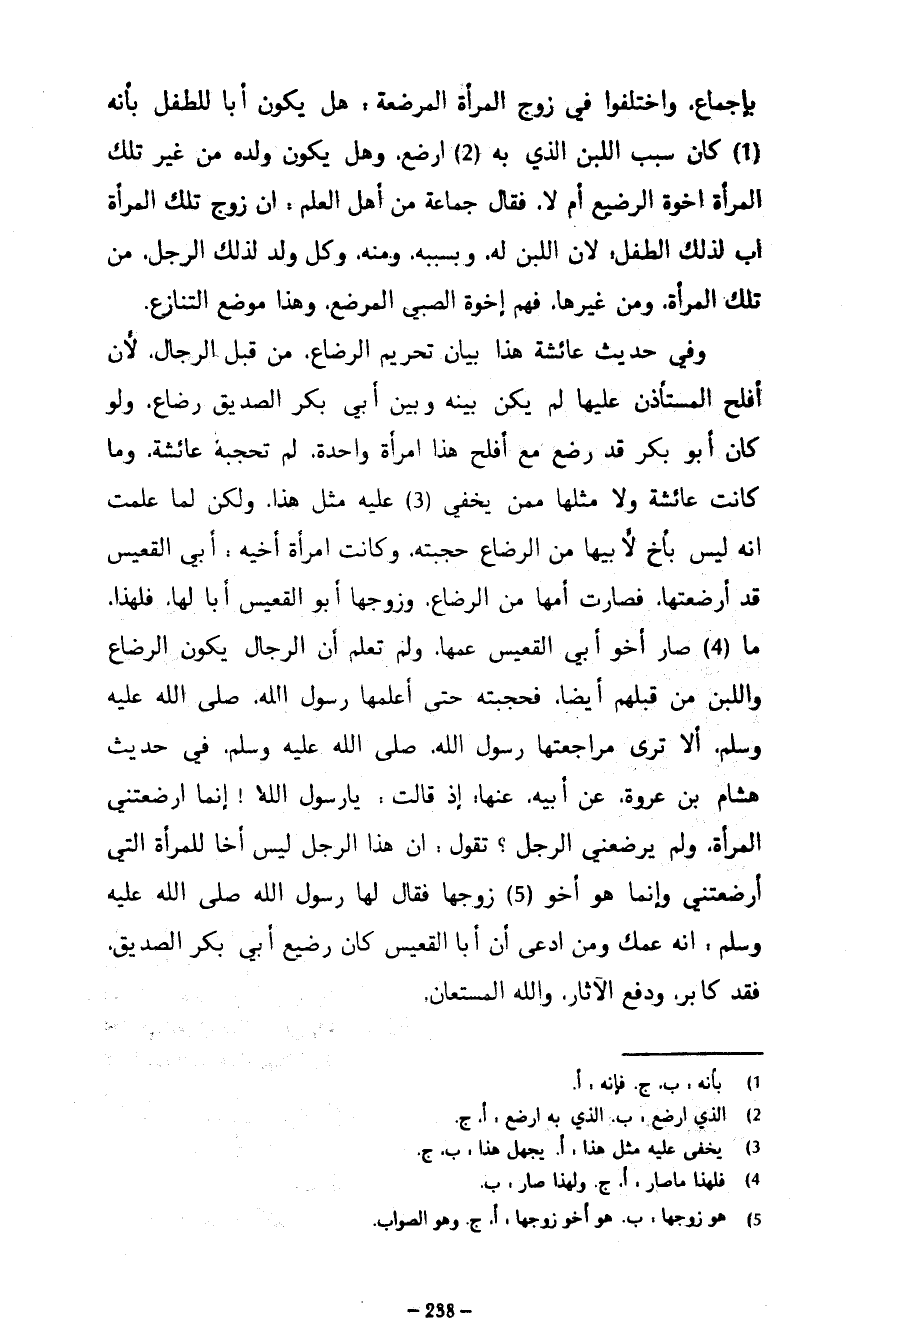 بإجماع، واختلفوا في زوج المرأة المرضعة : هل يكون أبا للطفل بأنه
(1) كان سبب اللبن الذي به (2) ارضع، وهل يكون ولده من غير تلك
المرأة اخوة الرضيع أم لا، فقال جماعة من أهل العلم : ان زوج تلك المرأة
اب لذلك الطفل؛ لان اللبن له، وبسببه، ومنه، وكل ولد لذلك الرجل، من
تلك المرأة، ومن غيرها، فهم إخوة الصبي المرضع، وهذا موضع التنازع.
وفي حديث عائشة هذا بيان تحريم الرضاع، من قبل الرجال، لأن
أفلح المستأذن عليها لم يكن بينه وبين أبي بكر الصديق رضاع، ولو
كان أبو بكر قد رضع مع أفلح هذا امرأة واحدة، لم تحجبه عائشة، وما
كانت عائشة ولا مثلها ممن يخفي (3) عليه مثل هذا، ولكن لما علمت
انه ليس بأخ لأبيها من الرضاع حجبته، وكانت امرأة أخيه : أبي القعيس
قد أرضعتها، فصارت أمها من الرضاع، وزوجها أبو القعيس أبا لها، فلهذا،
ما (4) صار أخو أبي القعيس عمها، ولم تعلم أن الرجال يكون الرضاع
واللبن من قبلهم أيضا، فحجبته حتى أعلمها رسول الله، صلى الله عليه
وسلم، ألا ترى مراجعتها رسول الله، صلى الله عليه وسلم، في حديث
هشام بن عروة، عن أبيه، عنها؛ إذ قالت : يارسول الله ! إنما ارضعتني
المرأة، ولم يرضعني الرجل ؟ تقول : ان هذا الرجل ليس أخا للمرأة التي
أرضعتني وإنما هو أخو (5) زوجها فقال لها رسول الله صلى الله عليه
وسلم : انه عمك ومن ادعى أن أبا القعيس كان رضيع أبي بكر الصديق،
فقد كابر، ودفع الآثار، والله المستعان.
1) بأنه : ب، ج. فإنه : أ.
2) الذي ارضع : ب. الذي به ارضع : أ. ج.
3) يخفى عليه مثل هذا : أ. يجهل هذا : ب، ج.
4) فلهذا ماصار : أ. ج. ولهذا صار : ب.
5) هو زوجها : ب. هو أخو زوجها : أ. ج. وهو الصواب.
– 238 –